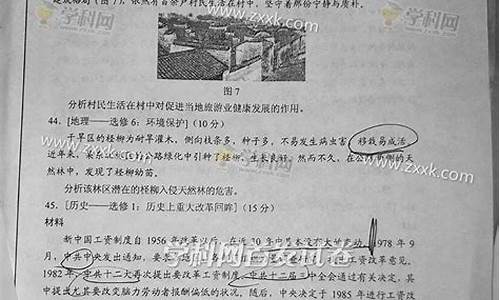 建成格局（图7），依然有百余户村民生活在村中，坚守着那份宁静与质朴。
图7
分析村民生活在村中对促进当地旅游业健康发展的作用。
44. [地理——选修6：环境保护]（10分）
干旱区的柽柳为耐旱灌木，侧向枝条多，种子多，不易发生病虫害，移栽易成活。
近年来，某干旱 公路绿化中引种了柽柳，生长良好。然而不久，在公路 侧的天
然林中，发现了柽柳幼苗。
分析该林区潜在的柽柳入侵天然林的危害。
45. [历史——选修1：历史上重大改革回眸]（15分）
材料
新中国工资制度自1956年改革以后，在近30年中基本没有大的变动。1978年9
月，中共中央发出通知，要 工资改革意见。
1982年，中共十二大再次提出要改革工资制度。中共十二届三中全会通过有关决定，其
中提出尤其要改变脑力劳动者报酬偏低的状况。随后，中央决定于1985年进行工资改
学科网
www.zxxk.com
学科网首发试卷